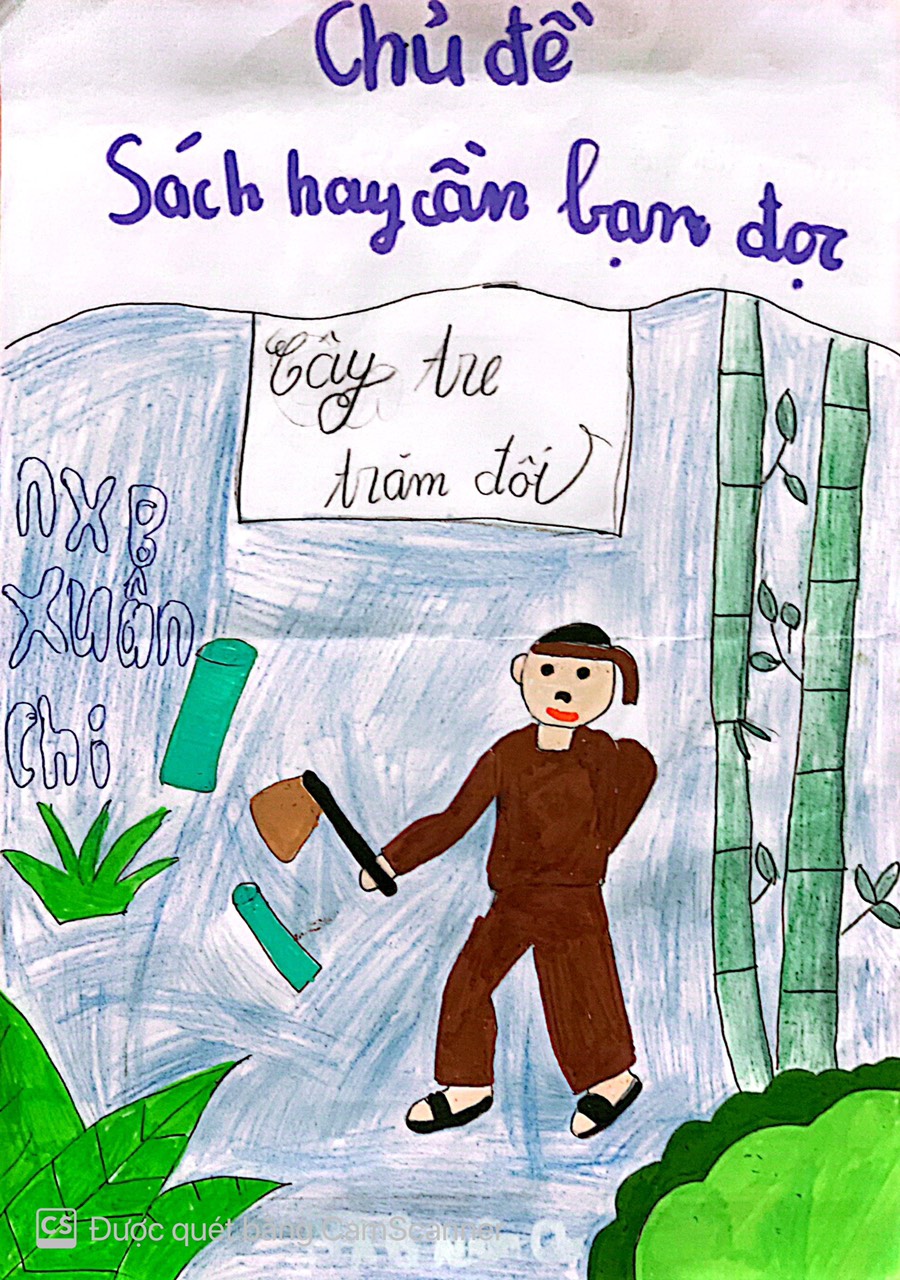 Chủ đề
Sách hay cần bạn đọc
Cây tre
trăm đốt
NXB
Xuân
Chi
CS Được quét bằng CamScanner